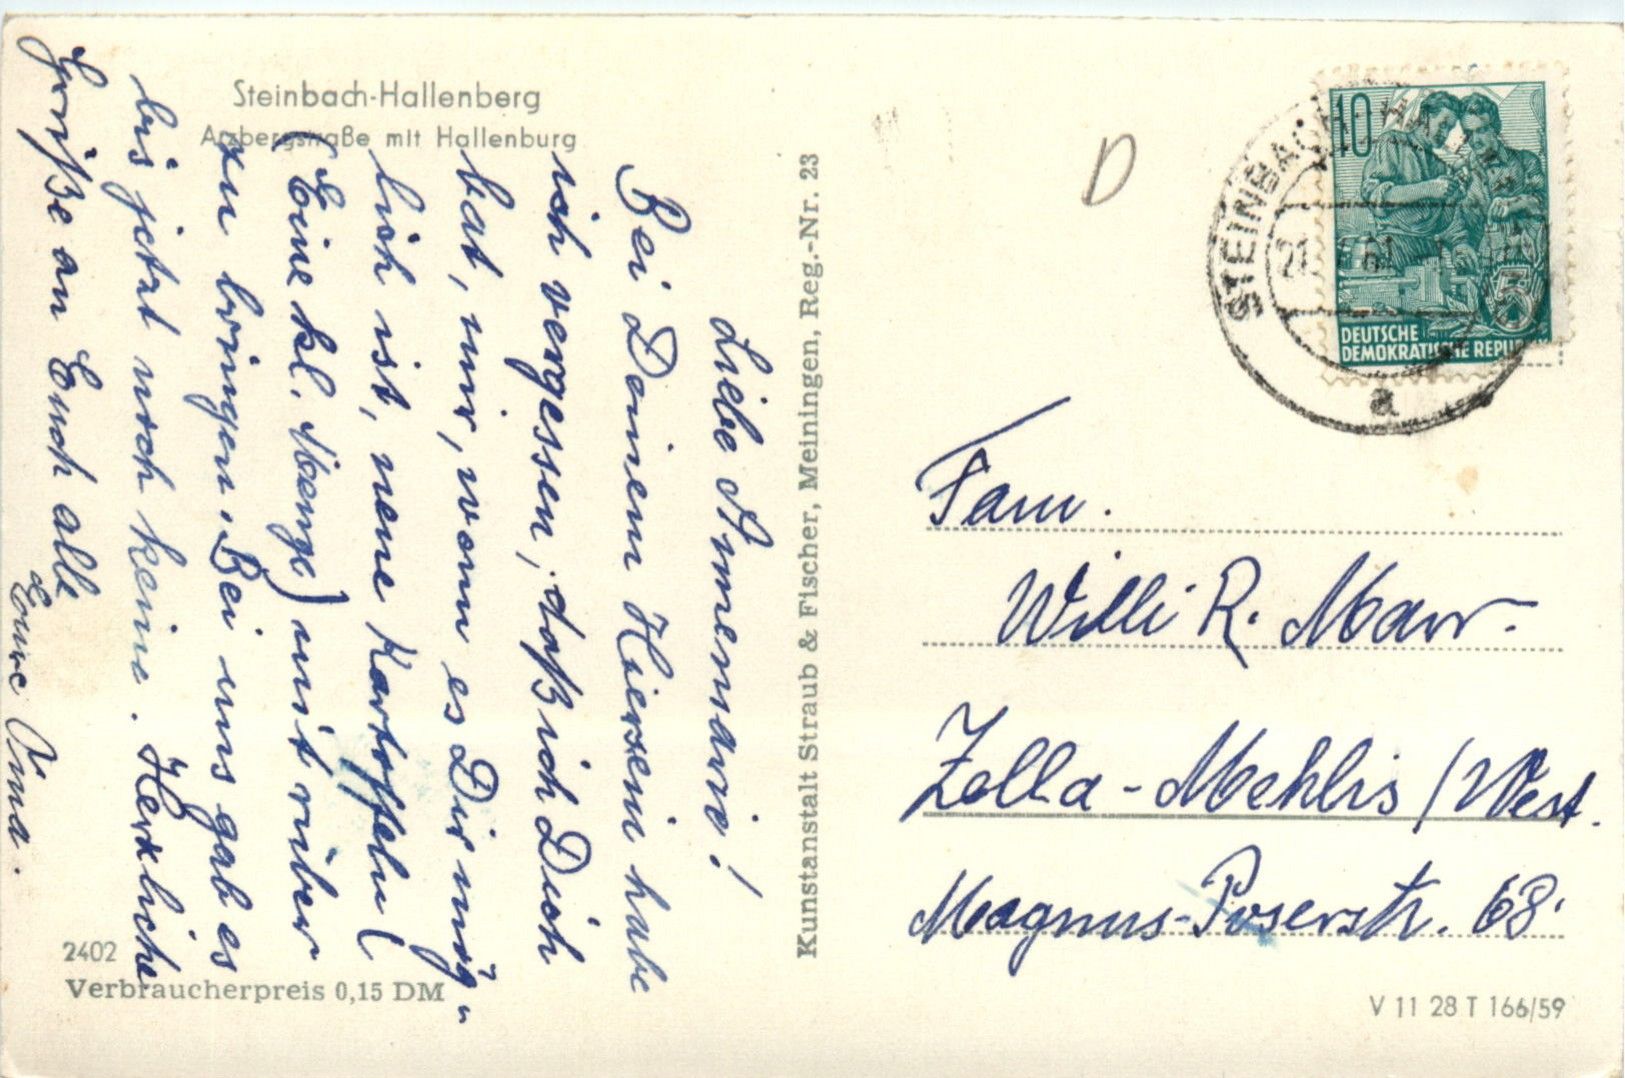 Steinbach-Hallenberg
Arzbergstraße mit Hallenburg
Liebe Annemarie!
Bei Deinem Hiersein habe
ich vergessen, daß ich Dich
bat, mir, wenn es Dir mög-
lich ist, neue Kartoffeln (
(Eine kl. Menge) mit rüber
zu bringen. Bei uns gab es
bis jetzt noch keine. Herzliche
Grüße an Euch alle
Eure
2402
Verbraucherpreis 0,15 DM
Kunstanstalt Straub & Fischer, Meiningen, Reg.-Nr. 23
D
10
5
DEUTSCHE
DEMOKRATISCHE REPU
STEINBACH-HALL
21. 61
a
Fam.
Willi R. Marr.
Zella-Mehlis/West.
Magnus-Poserstr. 68.
V 11 28 T 166/59